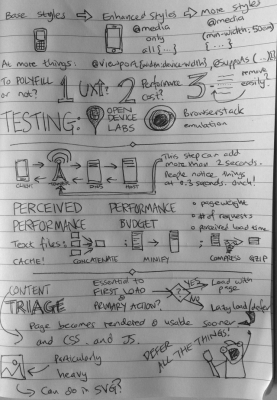 Base styles → Enhanced styles → More styles
@media only all {...}
@media (min-width: 50em) {...}
As more things: @viewport {width: device-width} @supports (...) {...}
To POLYFILL or not?
1 UX↑?
2 Performance cost?
3 remove easily?
TESTING:
OPEN DEVICE LABS
Browserstack emulation
CLICK!
DNS
HOST
This step can add more than 2 seconds.
People notice things at 0.3 seconds. Ouch!
PERCEIVED PERFORMANCE
PERFORMANCE BUDGET
page weight
# of requests
perceived load time
Text files:
CACHE!
CONCATENATE
MINIFY
COMPRESS GZIP
CONTENT TRIAGE
Essential to FIRST LOAD & PRIMARY ACTION?
?
YES
Load with page
NO
Lazy load/defer
Page becomes rendered & usable sooner
and CSS. and JS.
DEFER ALL THE THINGS!
Particularly heavy
Can do in SVG?